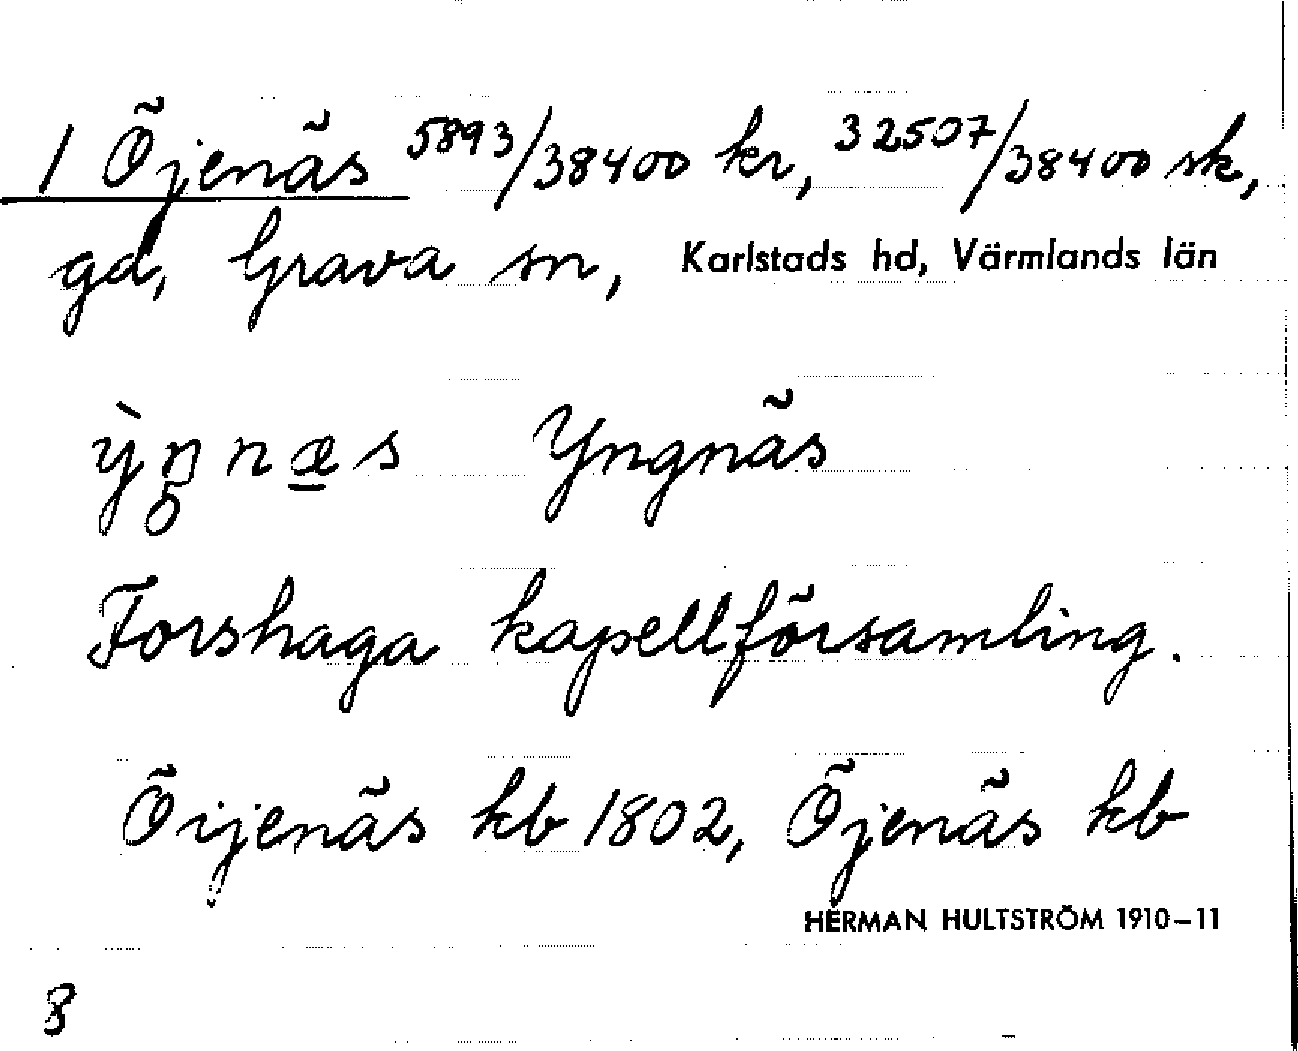 1 Öjenäs 5893/38400 kr, 32507/38400 sk,
gd, Grava sn, Karlstads hd, Värmlands län
ỳn̥næ̲s Yngnäs
Forshaga kapellförsamling.
Öijenäs kb 1802, Öjenäs kb
HERMAN HULTSTRÖM 1910–11
8